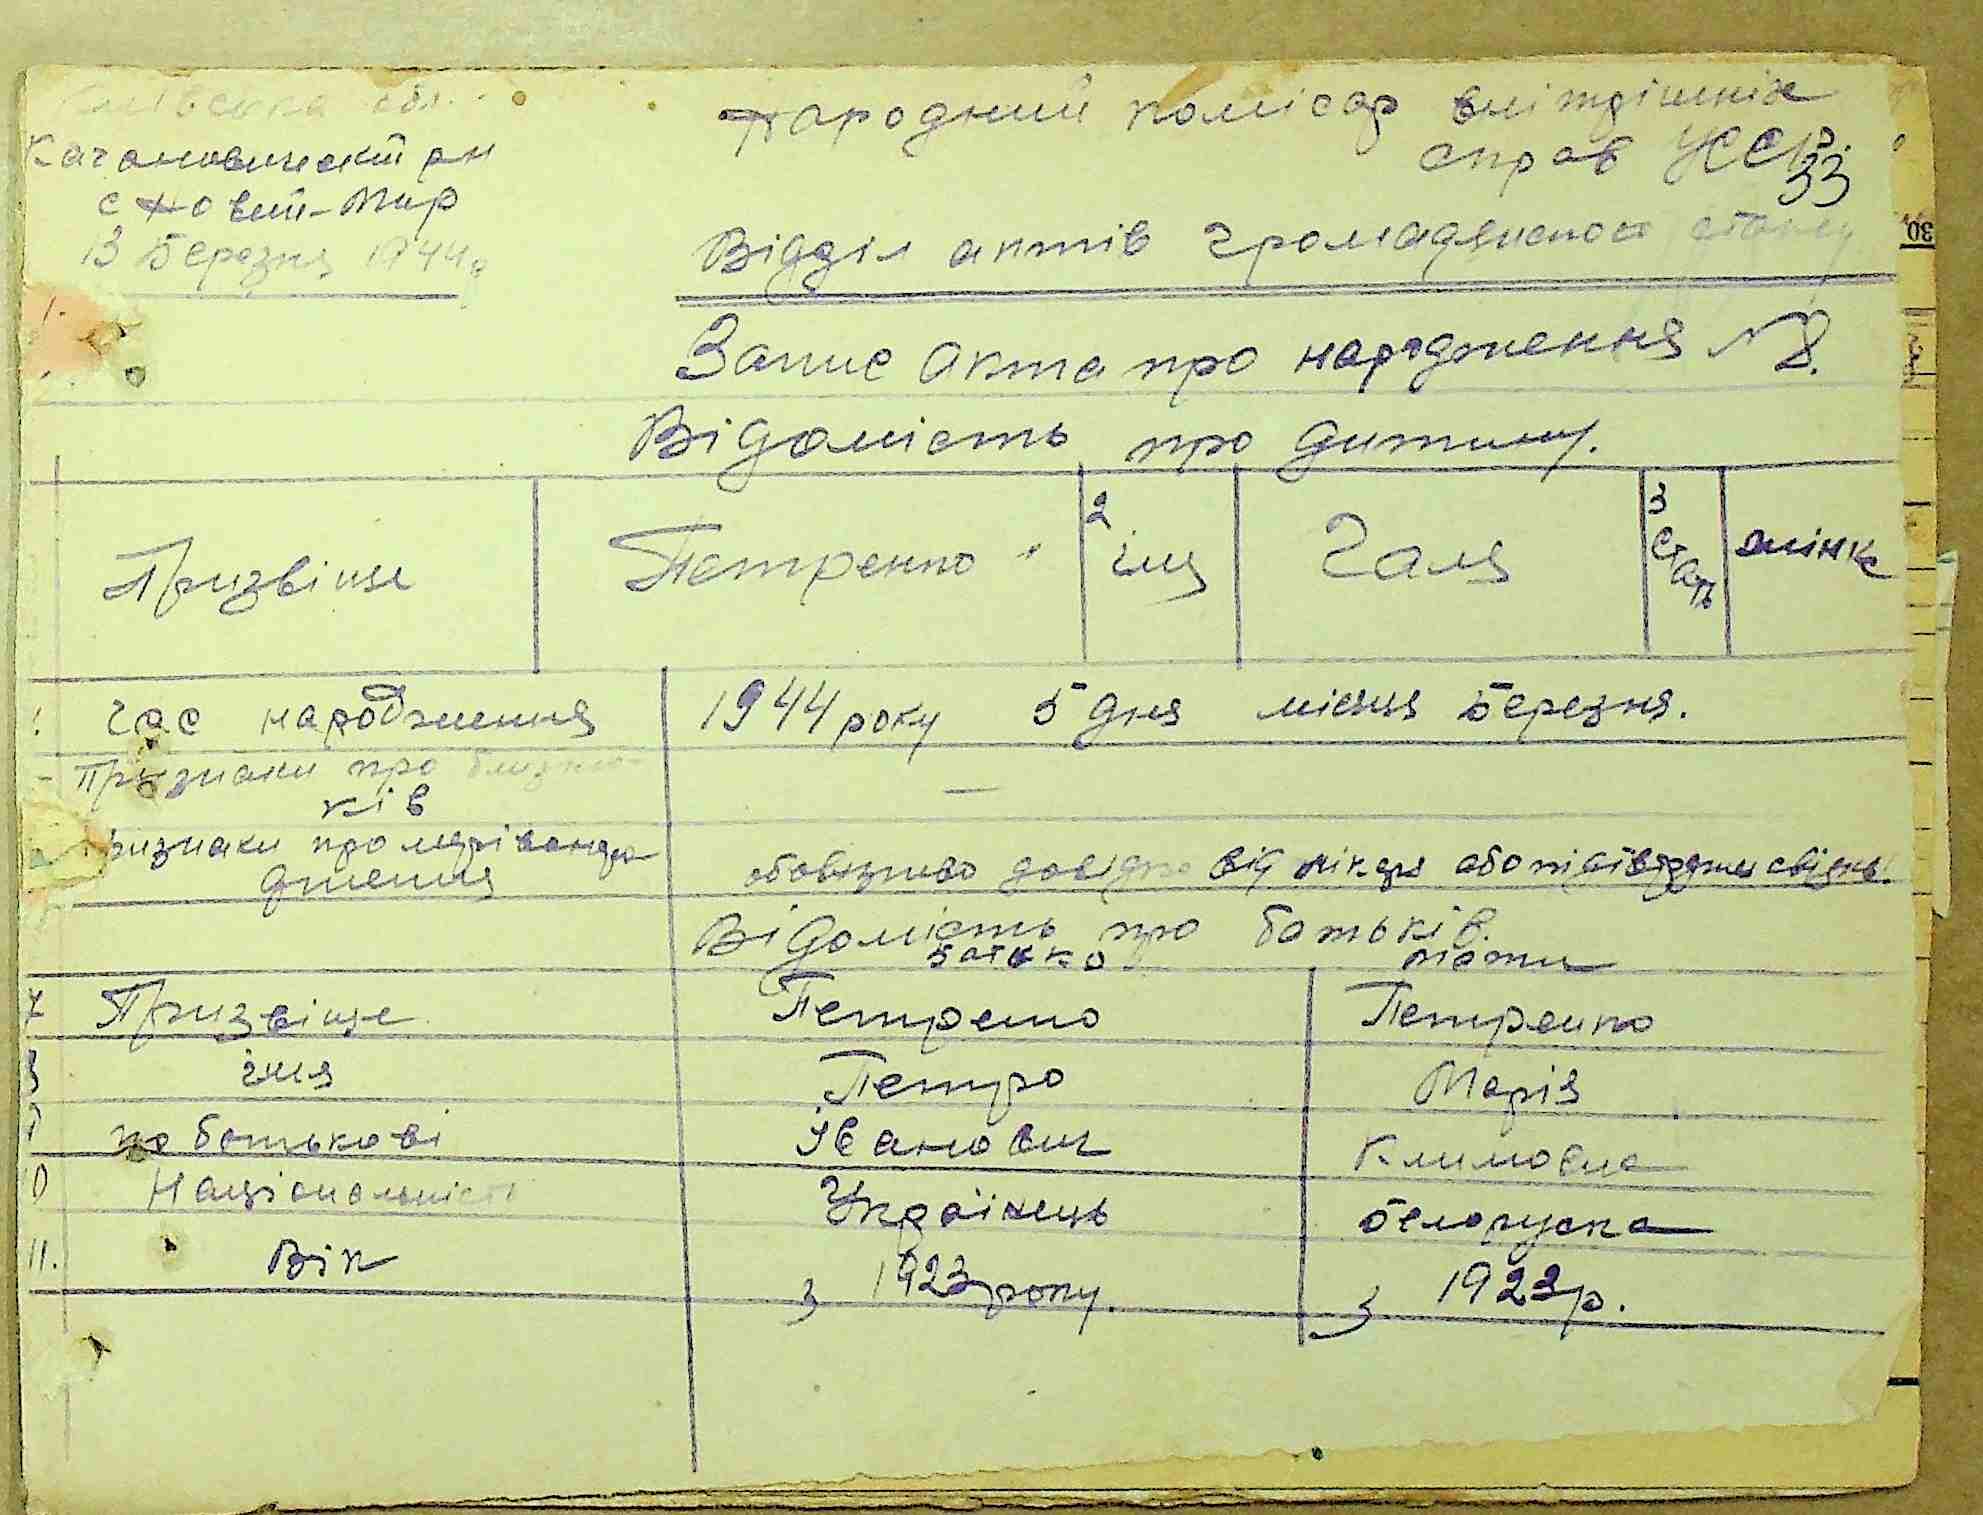 Київська обл.
Кагановический рн
с Новий-Мир
13 Березня 1944 р
Народний комісар внітрішніх
справ УССР.
33
Відділ актів громадянського стану
Запис акта про народження № 8.
Відомість про дитину.
Призвіще Петренко 2 імя Галя 3 стать жінка
час народження 1944 року 5 дня місяця Березня.
Признаки про близню-
ків —
ризнаки про мертвонаро
дження обовязково довідка від лікаря або підтвердж свідків
Відомість про батьків.
Батько мати
7 Призвіще Петренко Петренко
8 імя Петро Марія
9 по батькові Іванович Климовна
10 Національність Українець белоруска
11. Вік з 1923 року. з 1923 р.